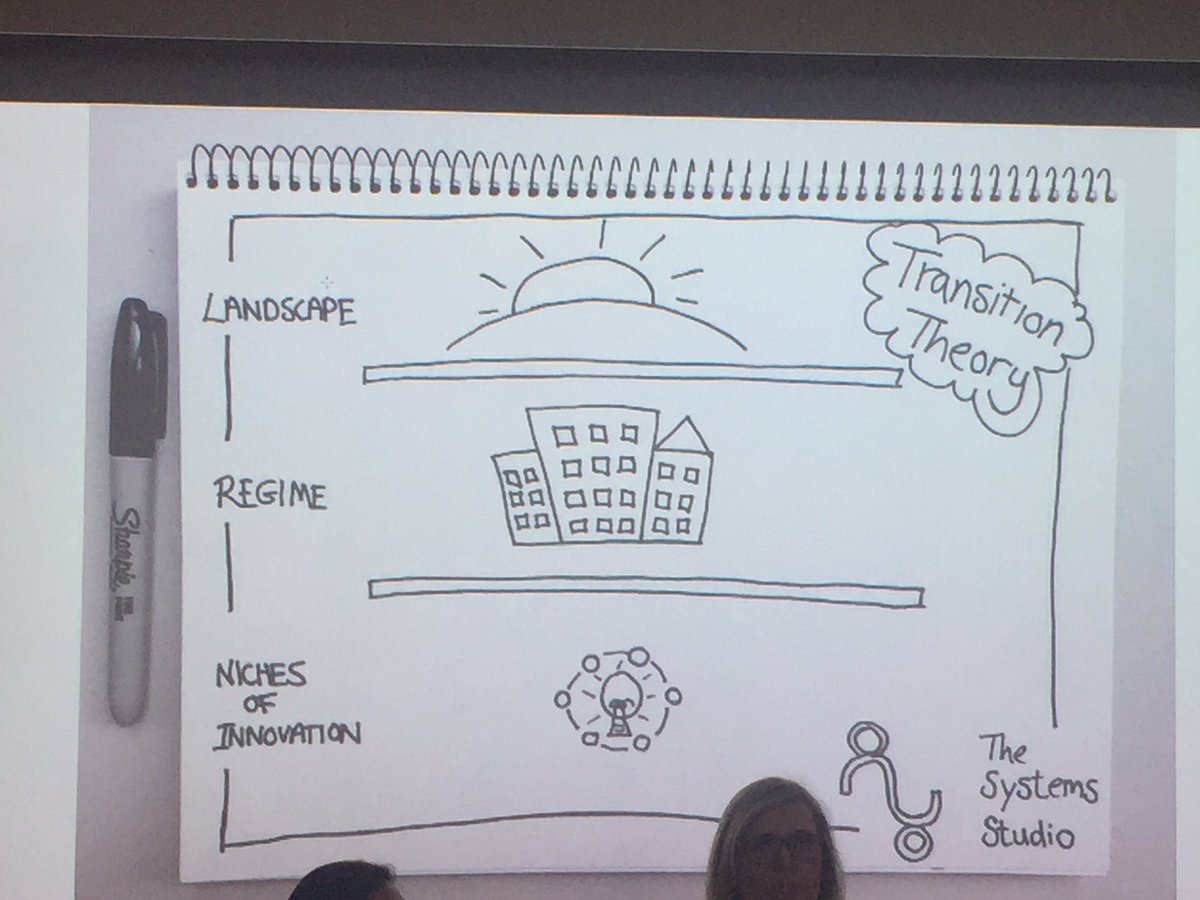 Transition
Theory
LANDSCAPE
REGIME
NICHES
OF
INNOVATION
Sharpie
The
Systems
Studio